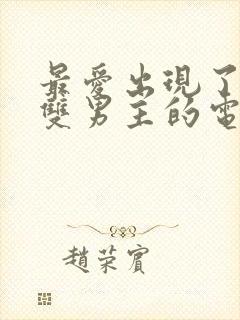 最愛出現了
雙男主的電
趙榮賓